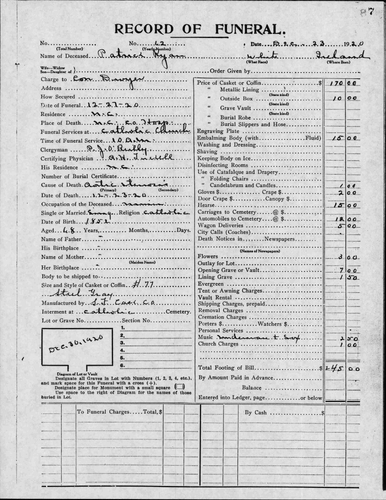 87
RECORD OF FUNERAL.
No. No. 62 Date Dec. 23 1920
(Total Number) (Yearly Number)
Name of Deceased Patrick Ryan White Ireland
(What Race) (Where Born)
Charge to Con Dwyer
Order Given by
How Secured
Date of Funeral 12-27-20
Residence N.C.
Place of Death N.C. Co Hosp
Funeral Services at Catholic Church
Time of Funeral Service 10 A.M.
Clergyman P.J.O Reilly
Certifying Physician
His Residence N.C.
Number of Burial Certificate
Cause of Death
(Primary)
Date of Death 12-23-20
Occupation of the Deceased
Single or Married Religion Catholic
Date of Birth 1852
Aged 68 Years, Months, Days.
Name of Father
His Birthplace
Name of Mother
(Maiden Name)
Her Birthplace
Body to be shipped to
Size and Style of Casket or Coffin #77
Steel Gray
Manufactured by
Interment at Catholic Cemetery.
Lot or Grave No. Section No.
1.
2.
3.
4.
5.
6.
DEC 30, 1920
Diagram of Lot or Vault
Designate all Graves in Lot with Numbers (1, 2, 3, 4, etc.) and mark space for this Funeral with a cross (+)
Designate place for Monument with a small square
Use space to the right of Diagram for the names of those buried in Lot.
Price of Casket or Coffin $ 170 00
" Metallic Lining
(State kind)
" Outside Box 10 00
" Grave Vault
(State kind)
" Burial Robe
(State kind)
" Burial Slippers and Hose
Engraving Plate
Embalming Body (with Fluid) 15 00
Washing and Dressing
Shaving
Keeping Body on Ice
Disinfecting Rooms
Use of Catafalque and Drapery
" Folding Chairs
" Candelabrum and Candles 1 00
Gloves $ Crape $ 2 00
Door Crape Canopy $
Hearse 15 00
Carriages to Cemetery @ $
Automobiles to Cemetery @ $ 12 00
Wagon Deliveries 5 00
City Calls (Coaches)
Death Notices in Newspapers
(Names of Newspapers)
Flowers 3 00
Outlay for Lot
Opening Grave or Vault 7 00
Lining Grave 1 50
Evergreen
Tent or Awning Charges
Vault Rental
Shipping Charges, prepaid
Removal Charges
Cremation Charges
Porters $ Watchers $
Personal Services
Music 2 50
Church Charges 1 00
Total Footing of Bill $ 245 00
By Amount Paid in Advance
Balance
Entered into Ledger, page or below.
To Funeral Charges, Total $
By Cash $